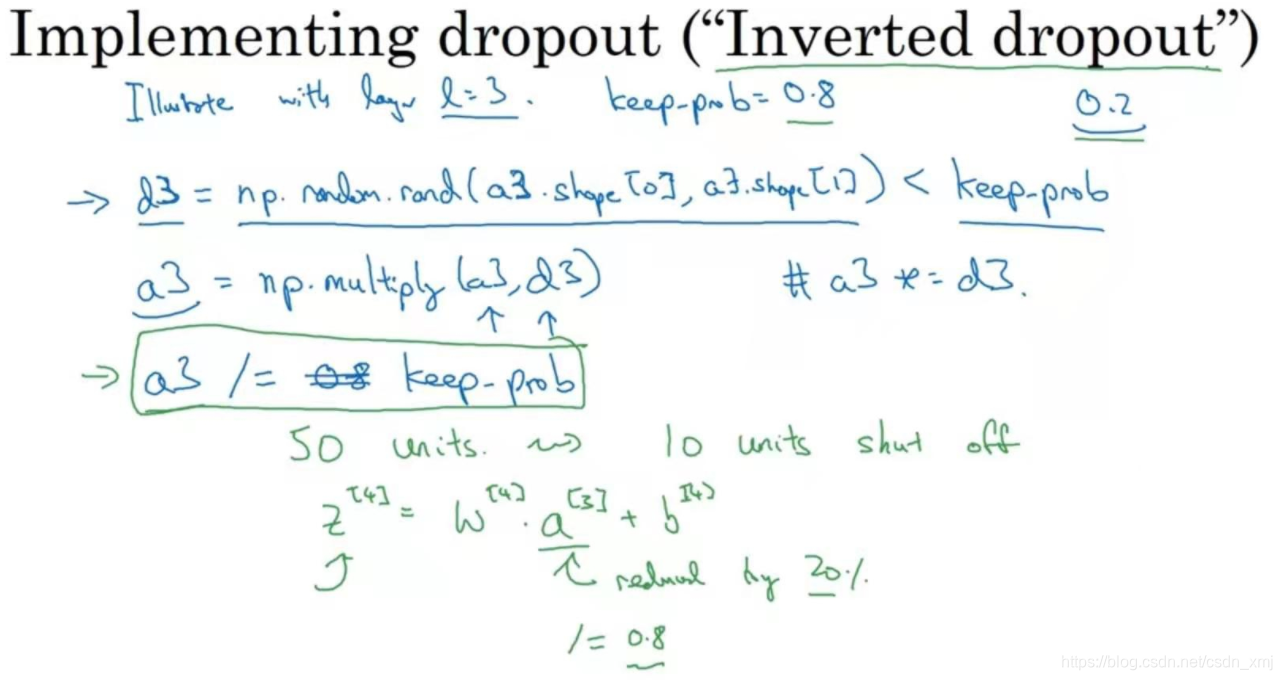 Implementing dropout (“Inverted dropout”)
Illustrate with layer l=3. keep-prob= 0.8 0.2
→ d3 = np.random.rand(a3.shape[0], a3.shape[1]) < keep-prob
a3 = np.multiply(a3, d3) # a3 *= d3.
↑ ↑
→ a3 /= 0.8 keep-prob
50 units. ⇝ 10 units shut off
z^[4] = W^[4] · a^[3] + b^[4]
reduced by 20%.
/= 0.8
https://blog.csdn.net/csdn_xmj